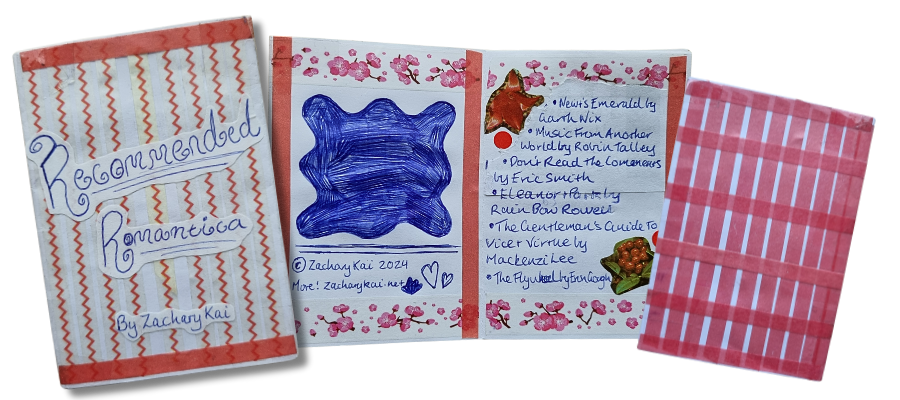 Recommended
Romantica
By Zachary Kai
© Zachary Kai 2024
More! zacharykai.net
• Newt's Emerald by
Garth Nix
• Music From Another
World by Robin Talley
• Don't Read the Comments
by Eric Smith
• Eleanor + Park by
Rain Bow Rowell
• The Gentleman's Guide To
Vice + Virtue by
Mackenzi Lee
• The Flywheel by Erin Gough